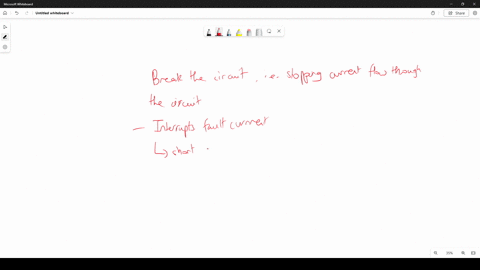 Microsoft Whiteboard
Untitled whiteboard
Share
Break the circuit i.e. stopping current flow through
the circuit
— Interrupts fault current
↳ short